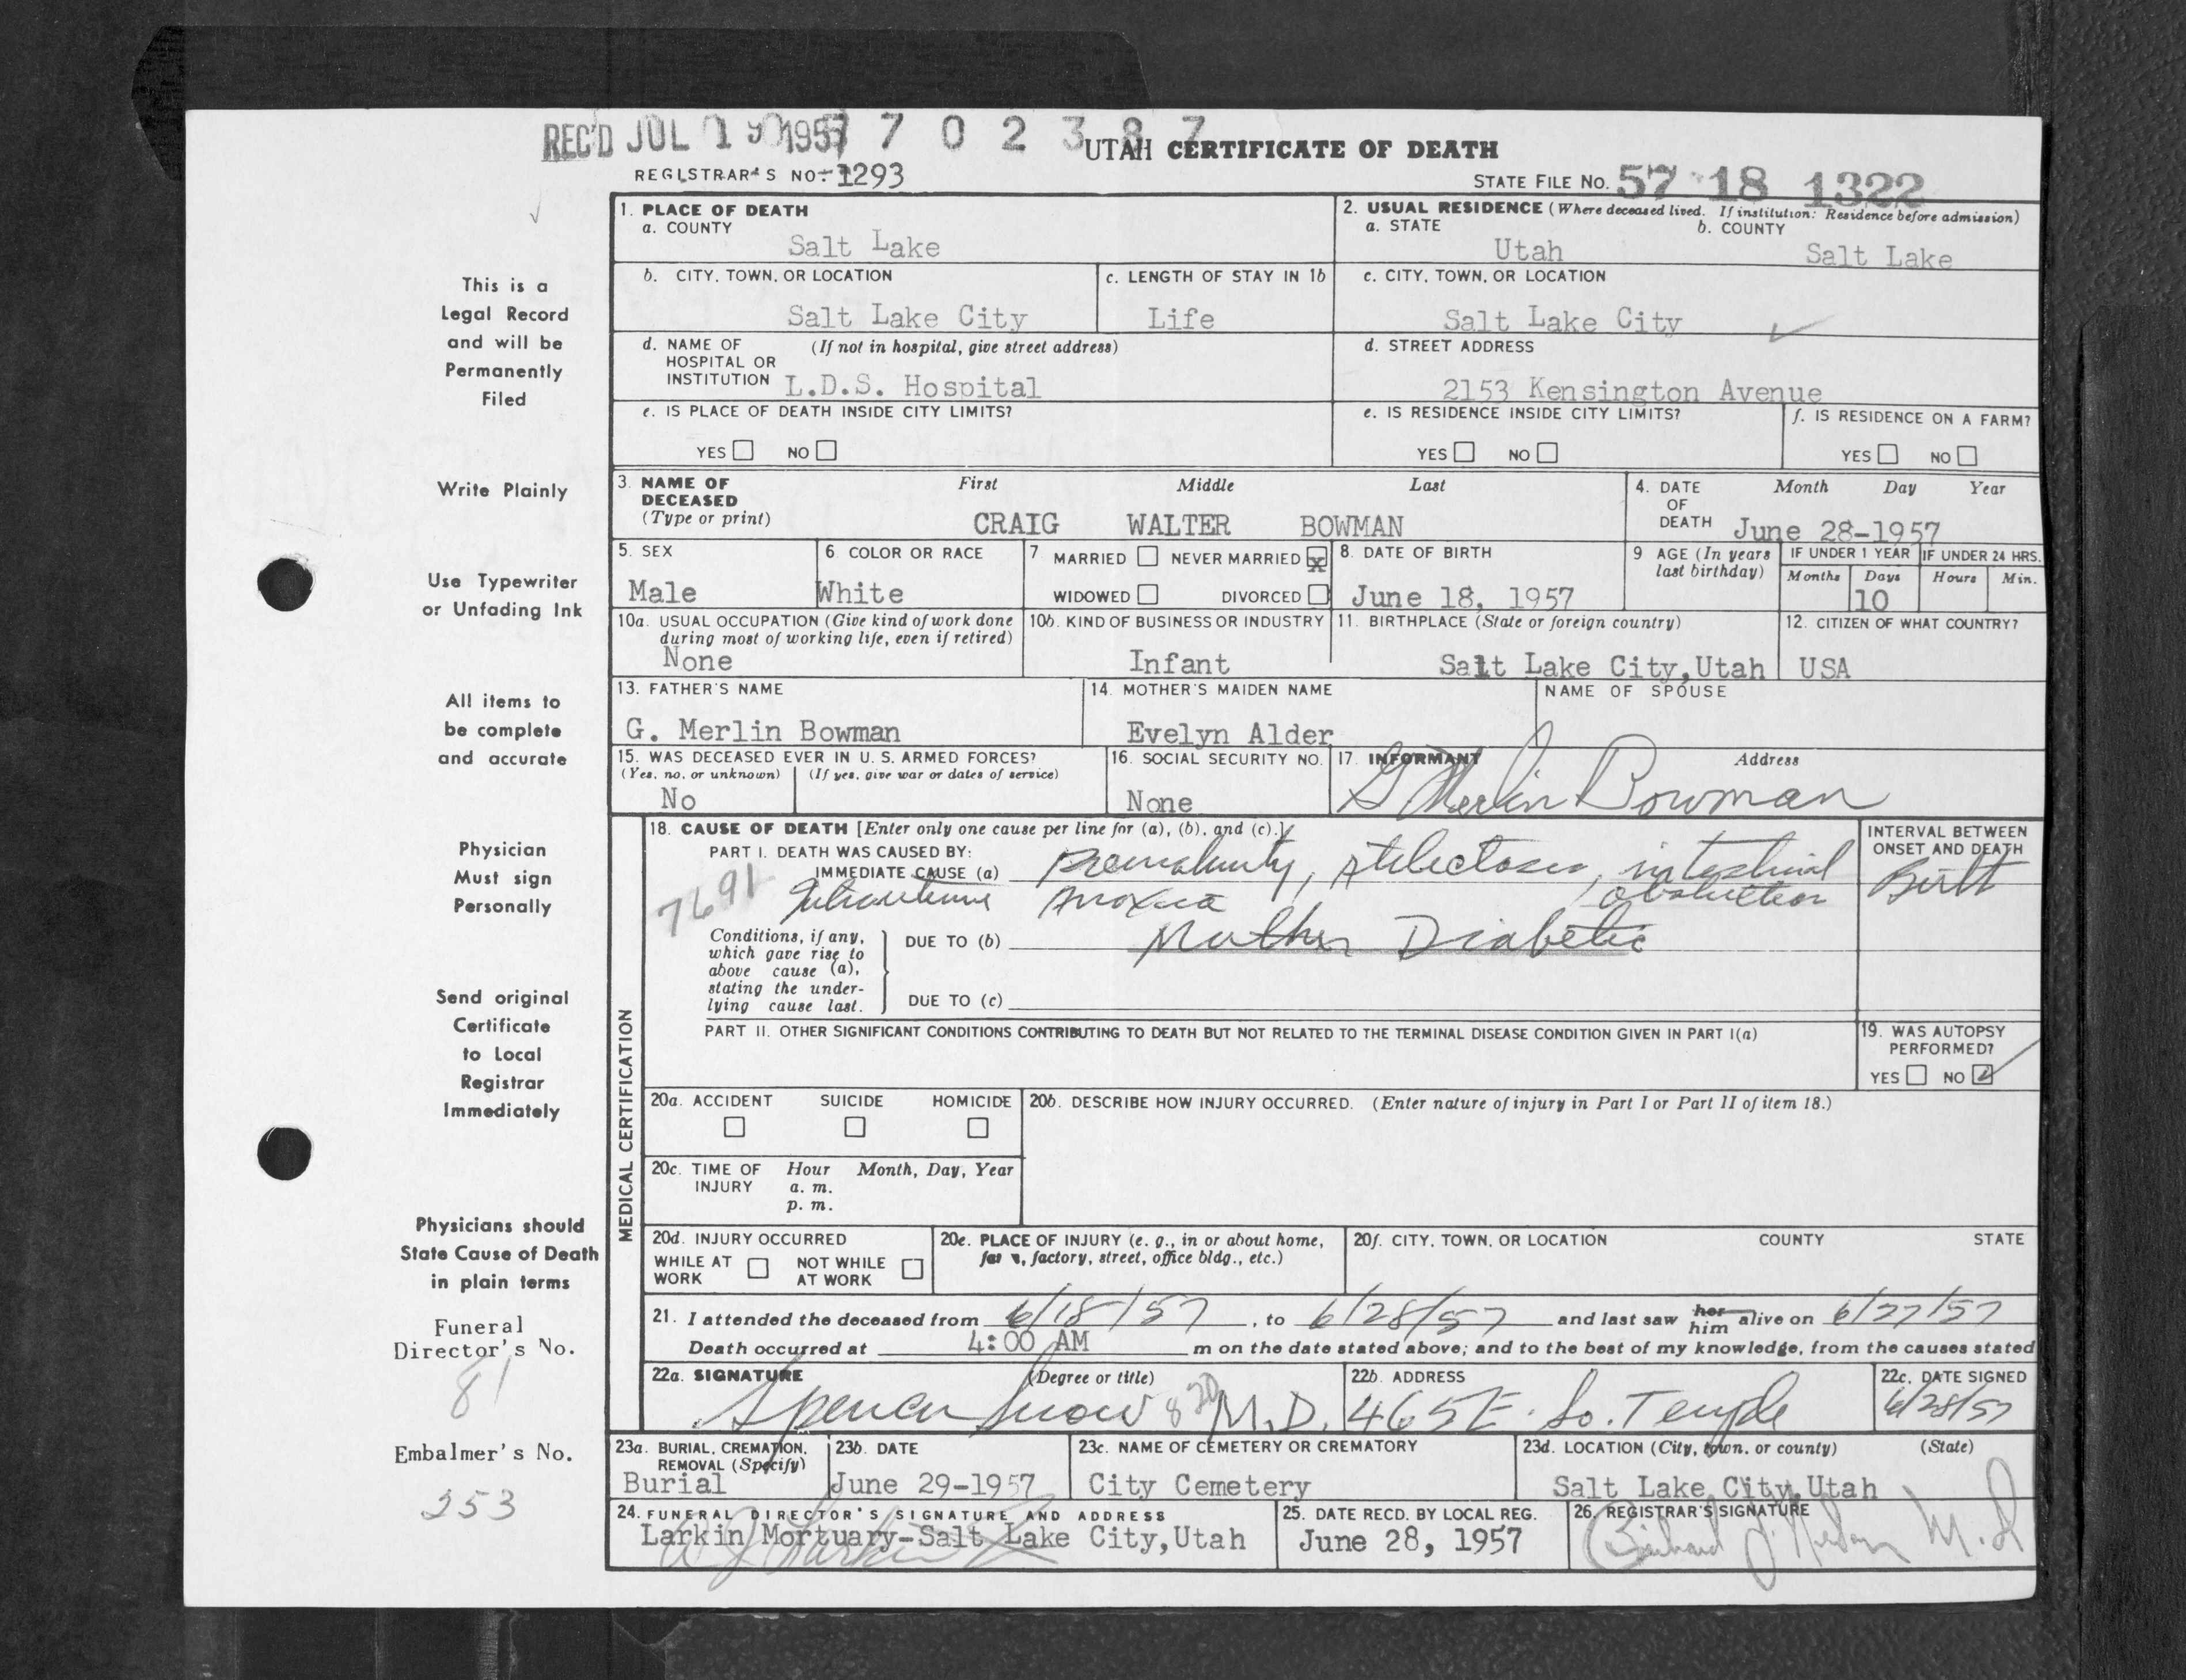 REC'D JUL 1 1957 7 0 2 3 8 7
UTAH CERTIFICATE OF DEATH
REGISTRAR'S NO. 1293
STATE FILE NO. 57 18 1322
1. PLACE OF DEATH
a. COUNTY
Salt Lake
2. USUAL RESIDENCE (Where deceased lived. If institution: Residence before admission)
a. STATE b. COUNTY
Utah Salt Lake
b. CITY, TOWN, OR LOCATION
Salt Lake City
c. LENGTH OF STAY IN 1b
Life
c. CITY, TOWN, OR LOCATION
Salt Lake City
d. NAME OF (If not in hospital, give street address)
HOSPITAL OR
INSTITUTION L.D.S. Hospital
d. STREET ADDRESS
2153 Kensington Avenue
e. IS PLACE OF DEATH INSIDE CITY LIMITS?
YES NO
e. IS RESIDENCE INSIDE CITY LIMITS?
YES NO
f. IS RESIDENCE ON A FARM?
YES NO
3. NAME OF First Middle Last
DECEASED
(Type or print) CRAIG WALTER BOWMAN
4. DATE Month Day Year
OF
DEATH June 28-1957
5. SEX
Male
6 COLOR OR RACE
White
7 MARRIED NEVER MARRIED X
WIDOWED DIVORCED
8. DATE OF BIRTH
June 18, 1957
9 AGE (In years
last birthday)
IF UNDER 1 YEAR IF UNDER 24 HRS.
Months Days Hours Min.
10
10a. USUAL OCCUPATION (Give kind of work done
during most of working life, even if retired)
None
10b. KIND OF BUSINESS OR INDUSTRY
Infant
11. BIRTHPLACE (State or foreign country)
Salt Lake City, Utah
12. CITIZEN OF WHAT COUNTRY?
USA
13. FATHER'S NAME
G. Merlin Bowman
14. MOTHER'S MAIDEN NAME
Evelyn Alder
NAME OF SPOUSE
15. WAS DECEASED EVER IN U. S. ARMED FORCES?
(Yes, no, or unknown) (If yes, give war or dates of service)
No
16. SOCIAL SECURITY NO.
None
17. INFORMANT Address
G Merlin Bowman
MEDICAL CERTIFICATION
18. CAUSE OF DEATH [Enter only one cause per line for (a), (b), and (c).]
PART I. DEATH WAS CAUSED BY:
IMMEDIATE CAUSE (a) Prematurity, Atelectasis, intestinal
obstruction
7691 Intrauterine Anoxia
INTERVAL BETWEEN
ONSET AND DEATH
Birth
Conditions, if any,
which gave rise to
above cause (a),
stating the under-
lying cause last.
DUE TO (b) Mother Diabetic
DUE TO (c)
PART II. OTHER SIGNIFICANT CONDITIONS CONTRIBUTING TO DEATH BUT NOT RELATED TO THE TERMINAL DISEASE CONDITION GIVEN IN PART I(a)
19. WAS AUTOPSY
PERFORMED?
YES NO
20a. ACCIDENT SUICIDE HOMICIDE
20b. DESCRIBE HOW INJURY OCCURRED. (Enter nature of injury in Part I or Part II of item 18.)
20c. TIME OF Hour Month, Day, Year
INJURY a. m.
p. m.
20d. INJURY OCCURRED
WHILE AT NOT WHILE
WORK AT WORK
20e. PLACE OF INJURY (e. g., in or about home,
factory, street, office bldg., etc.)
20f. CITY, TOWN, OR LOCATION COUNTY STATE
21. I attended the deceased from 6/18/57, to 6/28/57 and last saw her him alive on 6/27/57
Death occurred at 4:00 AM m on the date stated above; and to the best of my knowledge, from the causes stated
22a. SIGNATURE (Degree or title)
Spencer Snow 820 M.D.
22b. ADDRESS
465 E. So. Temple
22c. DATE SIGNED
6/28/57
23a. BURIAL, CREMATION,
REMOVAL (Specify)
Burial
23b. DATE
June 29-1957
23c. NAME OF CEMETERY OR CREMATORY
City Cemetery
23d. LOCATION (City, town, or county) (State)
Salt Lake City, Utah
24. FUNERAL DIRECTOR'S SIGNATURE AND ADDRESS
Larkin Mortuary-Salt Lake City, Utah
25. DATE RECD. BY LOCAL REG.
June 28, 1957
26. REGISTRAR'S SIGNATURE
This is a
Legal Record
and will be
Permanently
Filed
Write Plainly
Use Typewriter
or Unfading Ink
All items to
be complete
and accurate
Physician
Must sign
Personally
Send original
Certificate
to Local
Registrar
Immediately
Physicians should
State Cause of Death
in plain terms
Funeral
Director's No.
81
Embalmer's No.
253